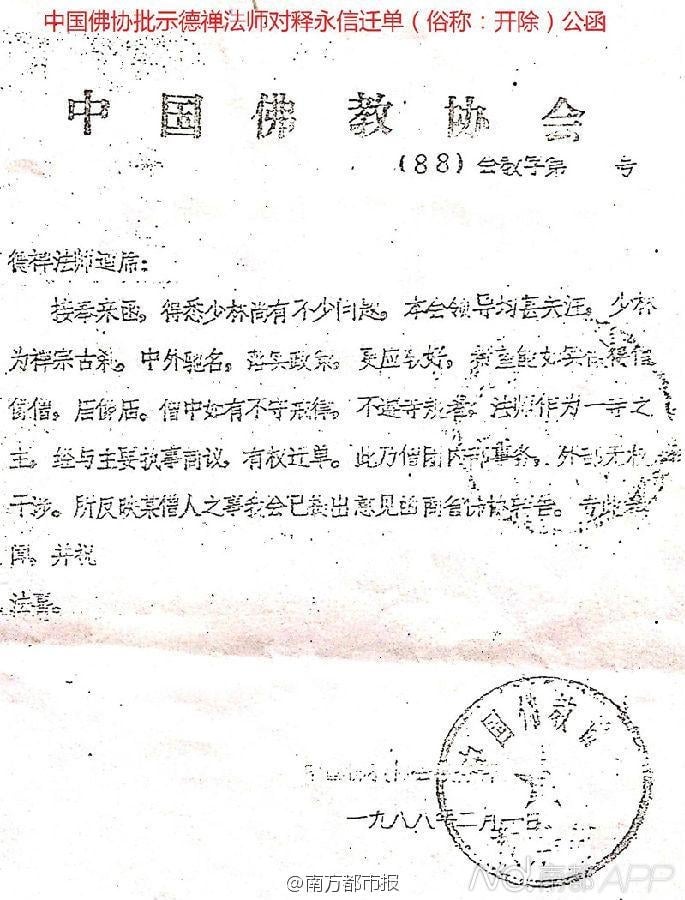 中国佛协批示德禅法师对释永信迁单（俗称：开除）公函
中国佛教协会
(88)会教字第 号
德禅法师莲席:
接奉来函，得悉少林尚有不少问题，本会领导均甚关注。少林
为禅宗古刹，中外驰名，落实政策，更应较好，
僧，居佛居。僧中如有不守戒律，不遵寺规者，法师作为一寺之
主，经与主要执事商议，有权迁单。此乃僧团内部事务，外部无权
干涉。所反映某僧人之事我会已提出意见函
并祝
法喜。
中国佛教协会
一九八八年二月一日
@南方都市报
N 南都APP